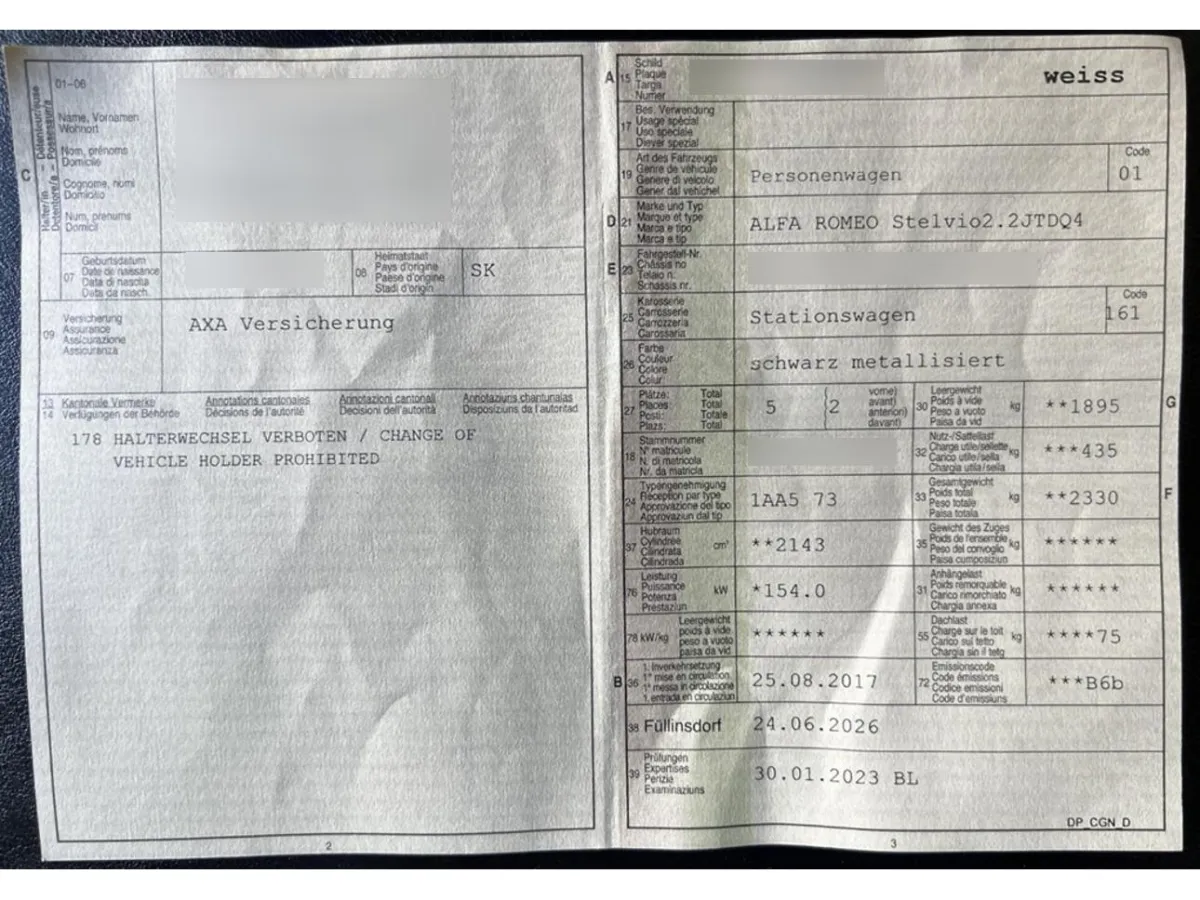 C
Halter/in – Détenteur/euse
Detentore/a – Possessur/a
01-06
Name, Vornamen
Wohnort
Nom, prénoms
Domicile
Cognome, nomi
Domicilio
Num, prenums
Domicil
07
Geburtsdatum
Date de naissance
Data di nascita
Data da nasch.
08
Heimatstaat
Pays d'origine
Paese d'origine
Stadi d'origin
SK
09
Versicherung
Assurance
Assicurazione
Assicuranza
AXA Versicherung
13
14
Kantonale Vermerke
Verfügungen der Behörde
Annotations cantonales
Décisions de l'autorité
Annotazioni cantonali
Decisioni dell'autorità
Annotaziuns chantunalas
Disposiziuns da l'autoritad
178 HALTERWECHSEL VERBOTEN / CHANGE OF
VEHICLE HOLDER PROHIBITED
2
A
15
Schild
Plaque
Targa
Numer
weiss
17
Bes. Verwendung
Usage spécial
Uso speciale
Diever spezial
19
Art des Fahrzeugs
Genre de véhicule
Genere di veicolo
Gener dal vehichel
Personenwagen
Code
01
D
21
Marke und Typ
Marque et type
Marca e tipo
Marca e tip
ALFA ROMEO Stelvio2.2JTDQ4
E
23
Fahrgestell-Nr.
Châssis no
Telaio n.
Schassis nr.
25
Karosserie
Carrosserie
Carrozzeria
Carossaria
Stationswagen
Code
161
26
Farbe
Couleur
Colore
Colur
schwarz metallisiert
27
Plätze: Total
Places: Total
Posti: Totale
Plazs: Total
5
(2
vorne)
avant)
anteriori)
davant)
30
Leergewicht
Poids à vide
Peso a vuoto
Paisa da vid
kg
**1895
G
18
Stammnummer
N° matricule
N. di matricola
Nr. da matricla
32
Nutz-/Sattellast
Charge utile/sellette
Carico utile/sella
Chargia utila/sella
kg
***435
24
Typengenehmigung
Réception par type
Approvazione del tipo
Approvaziun dal tip
1AA5 73
33
Gesamtgewicht
Poids total
Peso totale
Paisa totala
kg
**2330
F
37
Hubraum
Cylindrée
Cilindrata
Cilindrada
cm³
**2143
35
Gewicht des Zuges
Poids de l'ensemble
Peso del convoglio
Paisa cumposiziun
kg
******
76
Leistung
Puissance
Potenza
Prestaziun
kW
*154.0
31
Anhängelast
Poids remorquable
Carico rimorchiato
Chargia annexa
kg
******
78 kW/kg
Leergewicht
poids à vide
peso a vuoto
paisa da vid
******
55
Dachlast
Charge sur le toit
Carico sul tetto
Chargia sin il tetg
kg
****75
B
36
1. Inverkehrsetzung
1re mise en circulation
1a messa in circolazione
1. entrada en circulaziun
25.08.2017
72
Emissionscode
Code émissions
Codice emissioni
Code d'emissiuns
***B6b
38 Füllinsdorf
24.06.2026
39
Prüfungen
Expertises
Perizie
Examinaziuns
30.01.2023 BL
DP_CGN_D
3